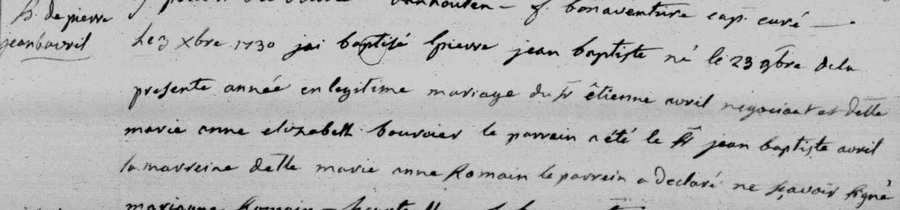 B. de pierre
jean b avril
f. bonaventure cap. curé
Le 3 Xbre 1730 jai baptisé pierre jean baptiste né le 23 9bre de la
presente année en legitime mariage du Sr êtienne avril negociant et delle
marie anne elizabeth bouvier le parrein a été le Sr jean baptiste avril
la marreine delle marie anne Romain le parrein a declaré ne sçavoir signé
marianne Romain